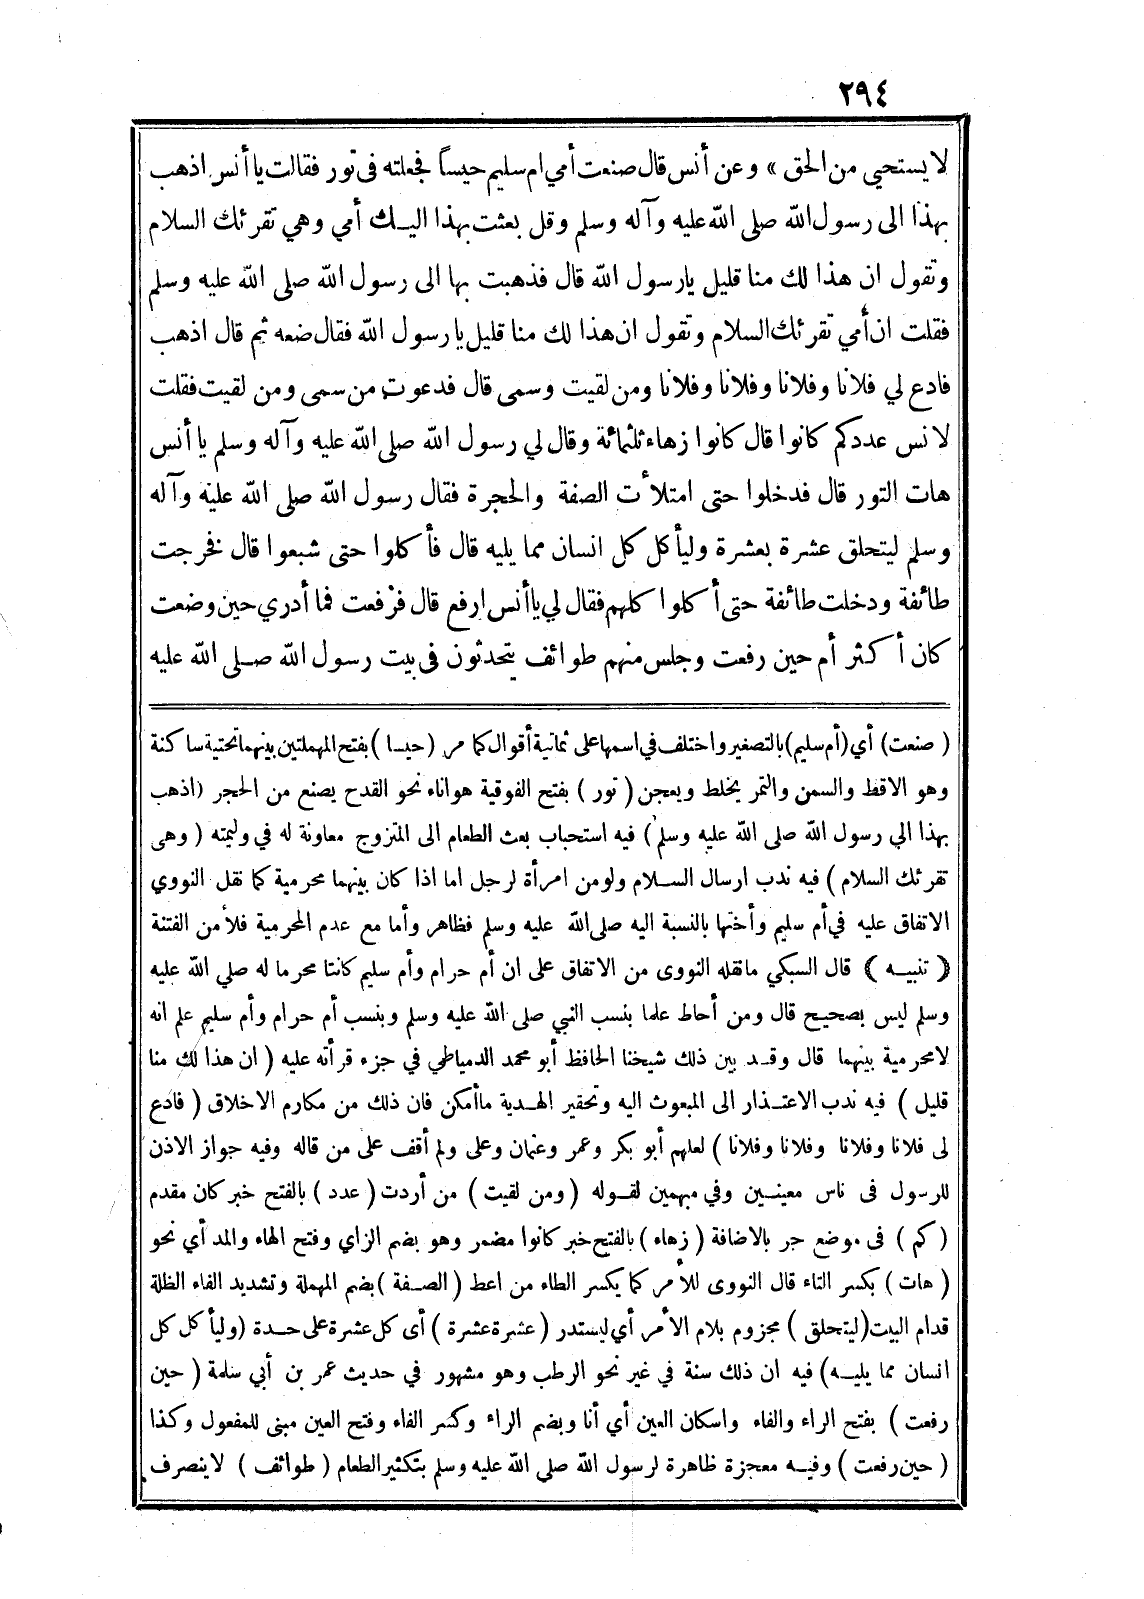 ٢٩٤
لا يستحيي من الحق » وعن أنس قال صنعت أمي ام سليم حيساً فجعلته في تور فقالت يا أنس اذهب
بهذا الى رسول الله صلى الله عليه وآله وسلم وقل بعثت بهذا اليك أمي وهي تقرئك السلام
وتقول ان هذا لك منا قليل يارسول الله قال فذهبت بها الى رسول الله صلى الله عليه وسلم
فقلت ان أمي تقرئك السلام وتقول ان هذا لك منا قليل يا رسول الله فقال ضعه ثم قال اذهب
فادع لي فلانا وفلانا وفلانا وفلانا ومن لقيت وسمى قال فدعوت من سمى ومن لقيت فقلت
لانس عددكم كانوا قال كانوا زهاء ثلثمائة وقال لي رسول الله صلى الله عليه وآله وسلم يا أنس
هات التور قال فدخلوا حتى امتلأت الصفة والحجرة فقال رسول الله صلى الله عليه وآله
وسلم ليتحلق عشرة بعشرة وليأكل كل انسان مما يليه قال فأكلوا حتى شبعوا قال فخرجت
طائفة ودخلت طائفة حتى أكلوا كلهم فقال لي يا أنس ارفع قال فرفعت فما أدري حين وضعت
كان أكثر أم حين رفعت وجلس منهم طوائف يتحدثون في بيت رسول الله صلى الله عليه
( صنعت ) أي ( أم سليم ) بالتصغير واختلف في اسمها على ثمانية أقوال كما مر ( حيسا ) بفتح المهملتين بينهما تحتية ساكنة
وهو الاقط والسمن والتمر يخلط ويعجن ( تور ) بفتح الفوقية هو اناء نحو القدح يصنع من الحجر ( اذهب
بهذا الي رسول الله صلى الله عليه وسلم ) فيه استحباب بعث الطعام الى المتزوج معاونة له في وليمته ( وهى
تقرئك السلام ) فيه ندب ارسال السلام ولو من امرأة لرجل اما اذا كان بينهما محرمية كما نقل النووي
الاتفاق عليه في أم سليم وأختها بالنسبة اليه صلى الله عليه وسلم فظاهر وأما مع عدم المحرمية فلأمن الفتنة
( تنبيه ) قال السبكي مانقله النووى من الاتفاق على ان أم حرام وأم سليم كانتا محرما له صلي الله عليه
وسلم ليس بصحيح قال ومن أحاط علما بنسب النبي صلى الله عليه وسلم وبنسب أم حرام وأم سليم علم انه
لامحرمية بينهما قال وقد بين ذلك شيخنا الحافظ أبو محمد الدمياطي في جزء قرأته عليه ( ان هذا لك منا
قليل ) فيه ندب الاعتذار الى المبعوث اليه وتحقير الهدية ما أمكن فان ذلك من مكارم الاخلاق ( فادع
لى فلانا وفلانا وفلانا وفلانا ) لعلهم أبو بكر وعمر وعثمان وعلى ولم أقف على من قاله وفيه جواز الاذن
للرسول فى ناس معينين وفي مبهمين لقوله ( ومن لقيت ) من أردت ( عدد ) بالفتح خبر كان مقدم
( كم ) فى موضع جر بالاضافة ( زهاء ) بالفتح خبر كانوا مضمر وهو بضم الزاي وفتح الهاء والمد أي نحو
( هات ) بكسر التاء قال النووى للأمر كما يكسر الطاء من اعط ( الصفة ) بضم المهملة وتشديد الفاء الظلة
قدام البيت ( ليتحلق ) مجزوم بلام الأمر أي ليستدر ( عشرة عشرة ) أى كل عشرة على حدة ( وليأكل كل
انسان مما يليه ) فيه ان ذلك سنة في غير نحو الرطب وهو مشهور في حديث عمر بن أبي سلمة ( حين
رفعت ) بفتح الراء والفاء واسكان العين أي أنا وبضم الراء وكسر الفاء وفتح العين مبنى للمفعول وكذا
( حين رفعت ) وفيه معجزة ظاهرة لرسول الله صلى الله عليه وسلم بتكثير الطعام ( طوائف ) لا ينصرف